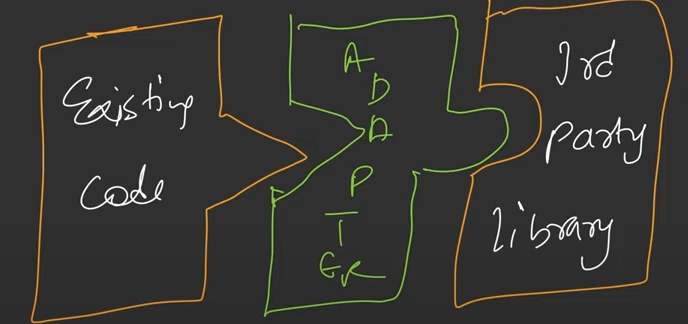 Existing
Code
A
D
A
P
T
E
R
3rd
Party
Library